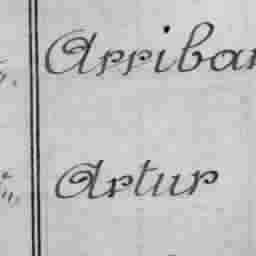 Arribar
Artur